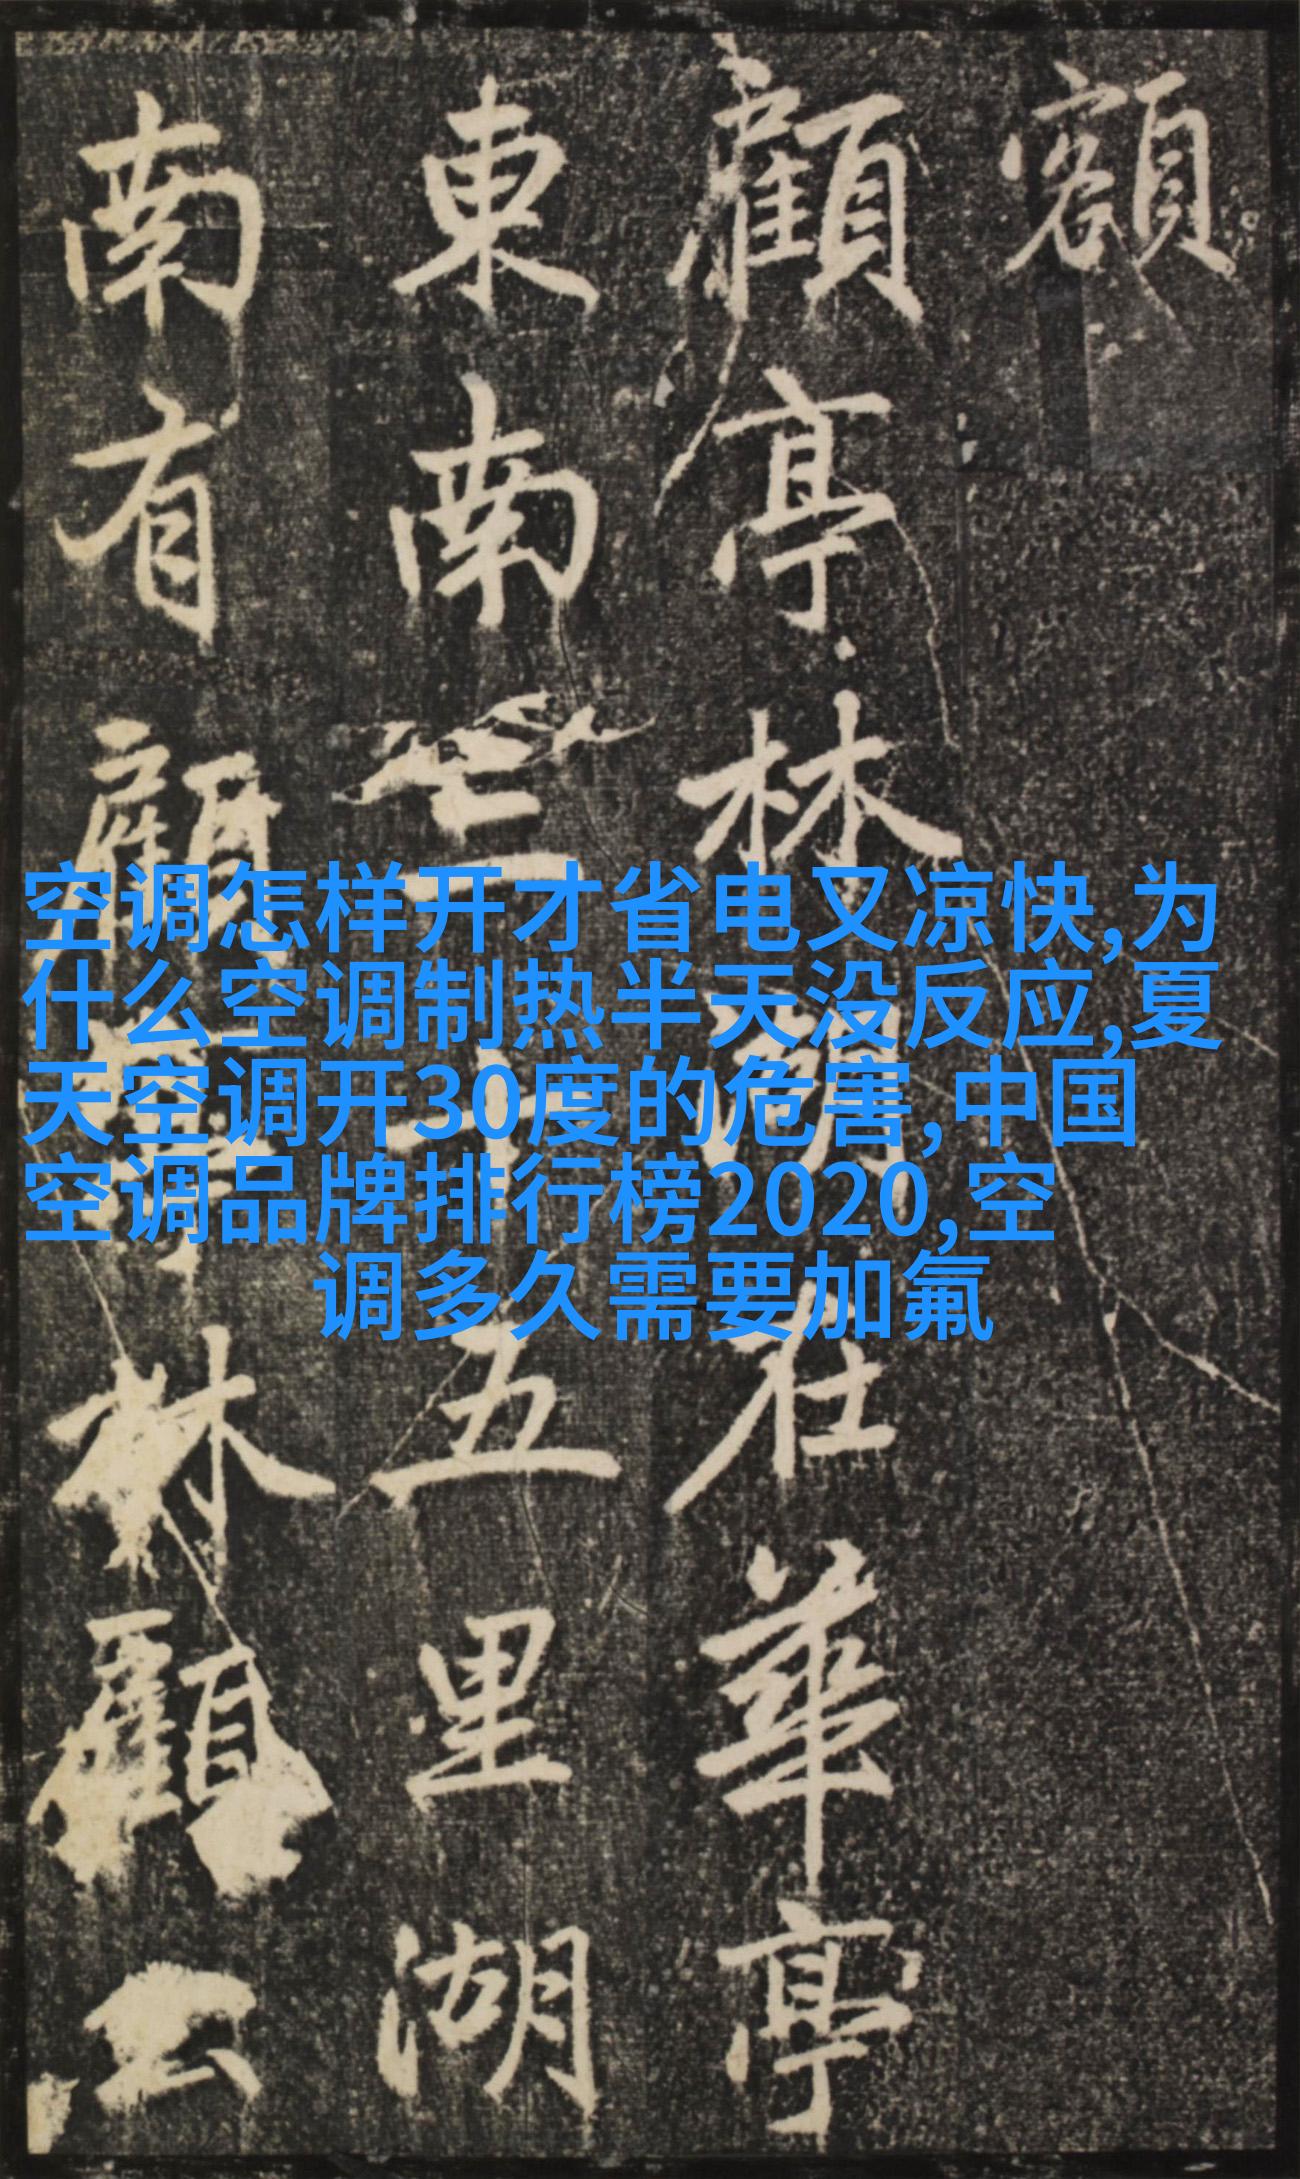 額
顧亭林湖在華亭
東南三十五里湖
南有顧亭林顧公
空调怎样开才省电又凉快,为
什么空调制热半天没反应,夏
天空调开30度的危害,中国
空调品牌排行榜2020,空
调多久需要加氟